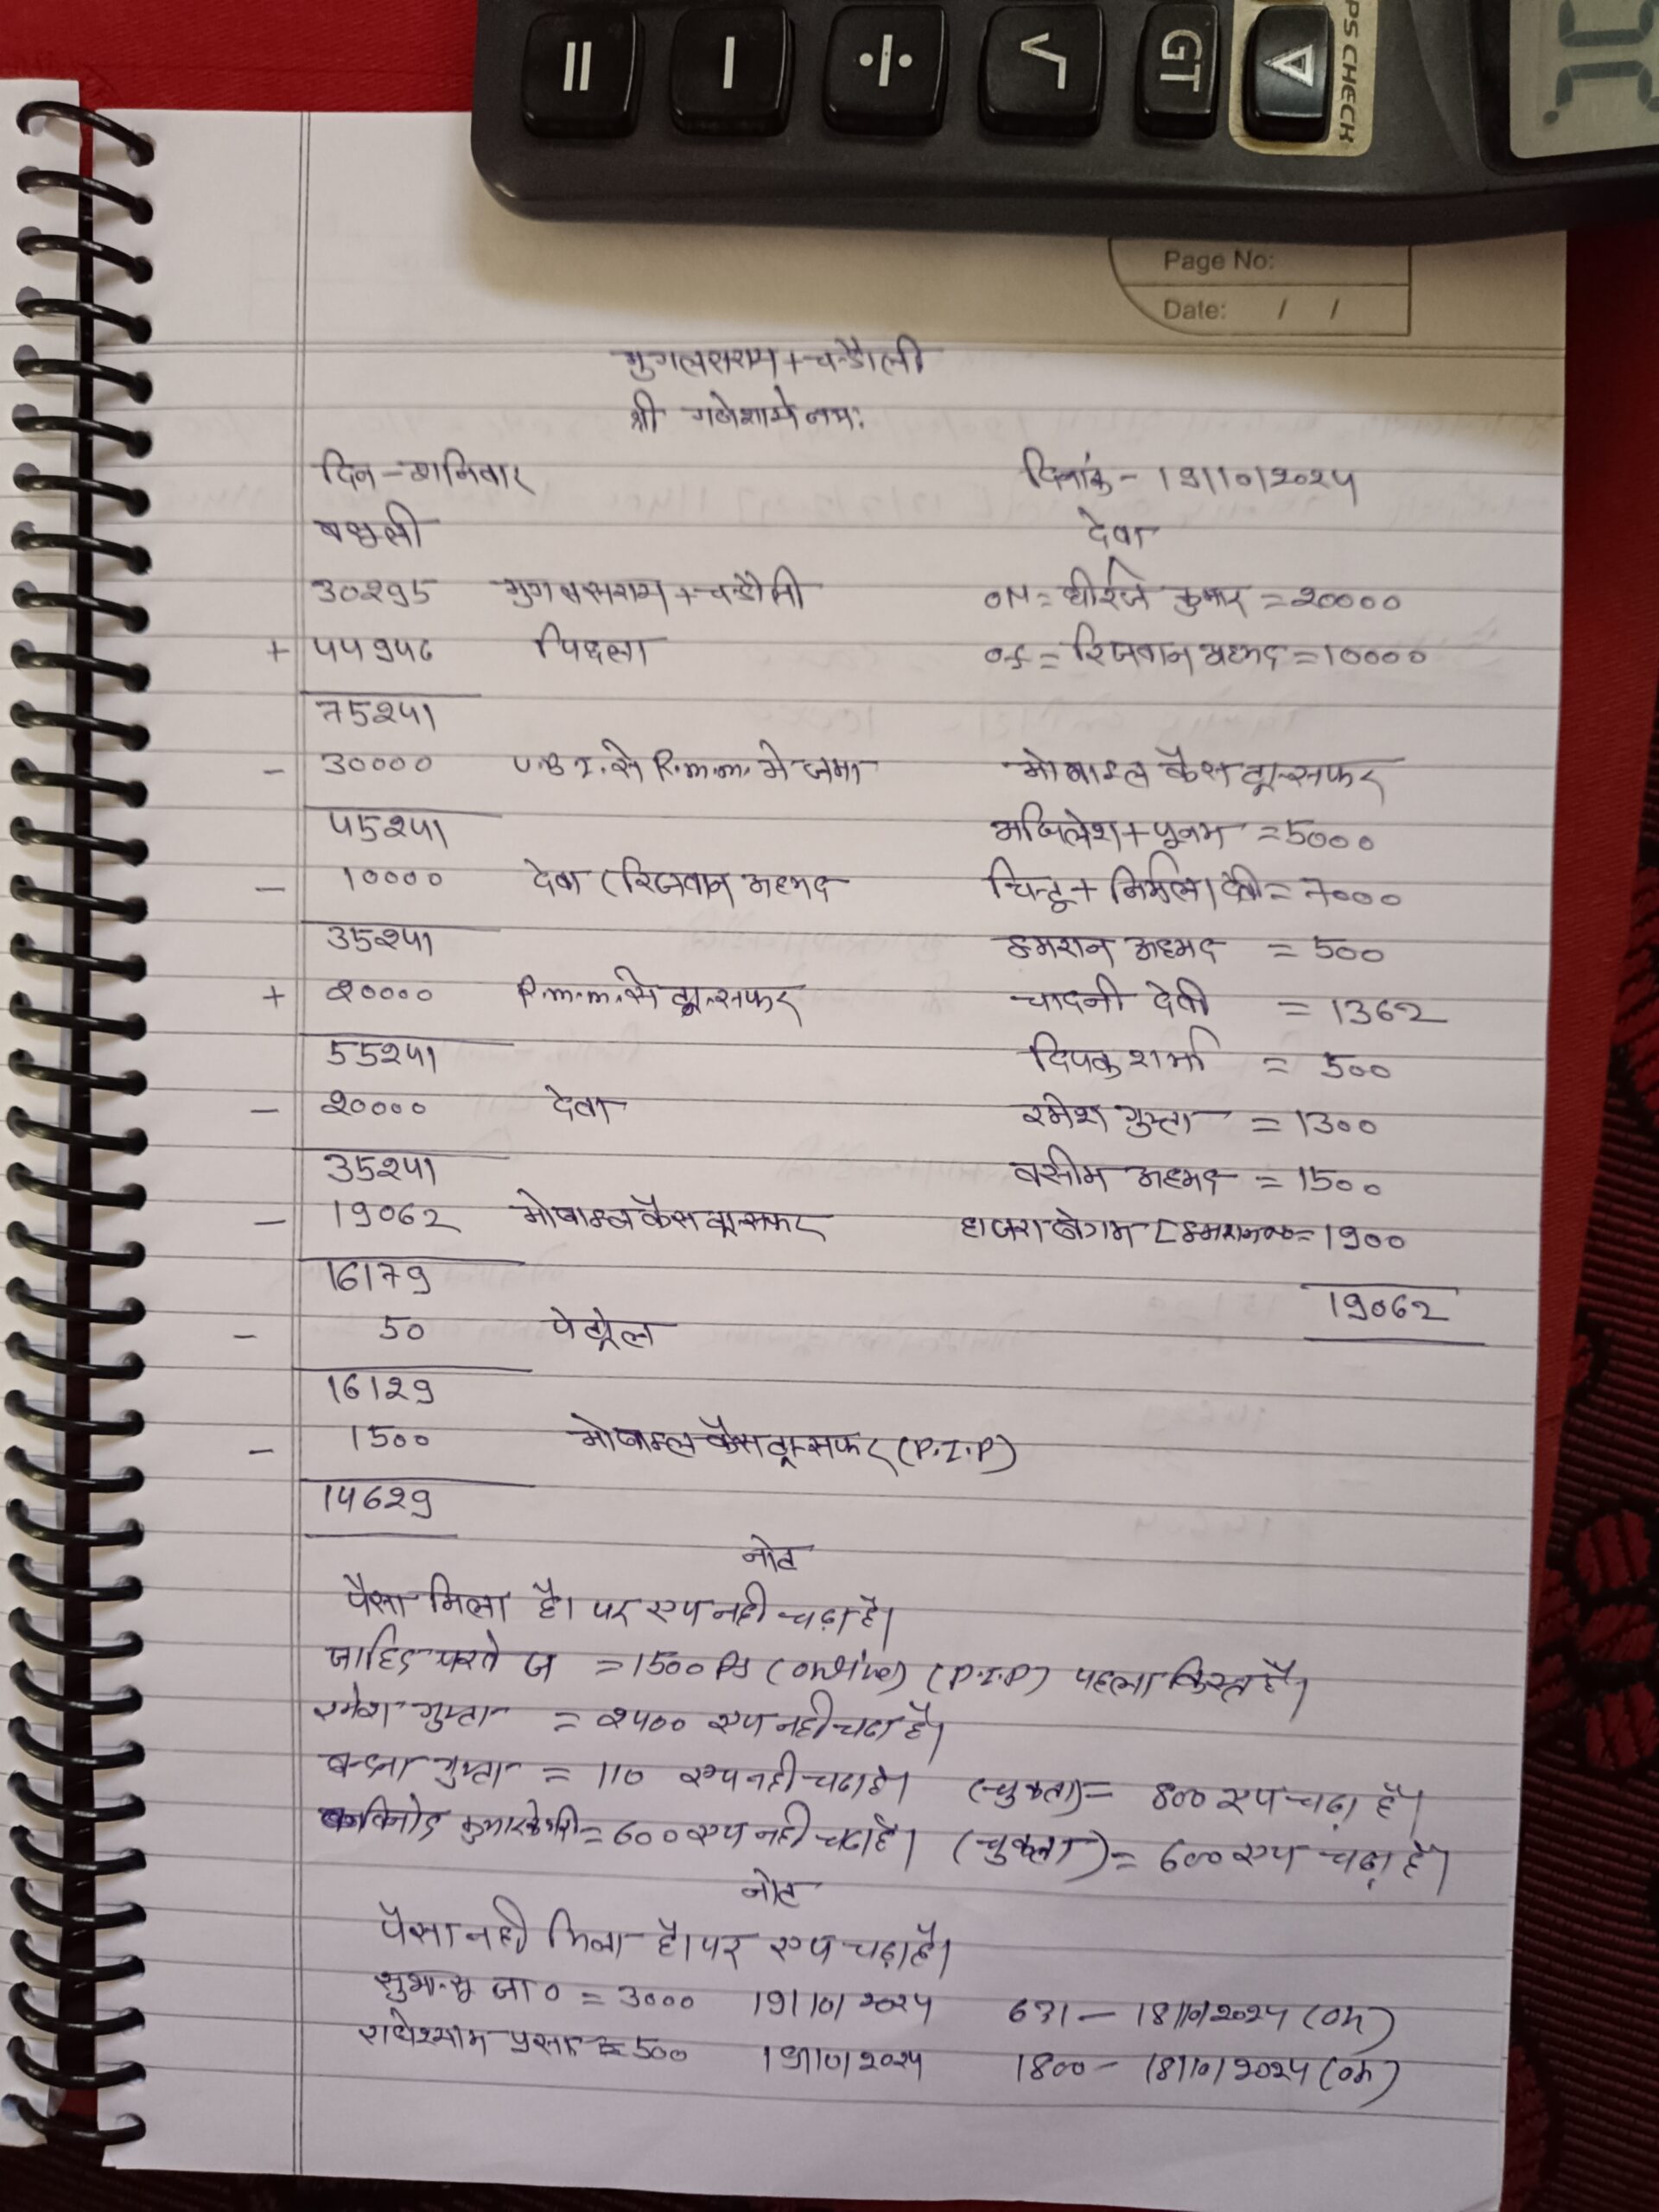 PS CHECK
GT
Page No:
Date: / /
मुगलसराय + चन्डौली
श्री गणेशाये नमः
दिन - शनिवार दिनांक - 19/10/2024
वसुली देवा
30295 मुगलसराय + चन्डौली ON = धीरज कुमार = 20000
+ 44946 पिछला of = रिजवान अहमद = 10000
75241
- 30000 U.B.I. से P.m.m. मे जमा मोबाइल कैस ट्रान्सफर
45241 अखिलेश + पूनम = 5000
- 10000 देवा (रिजवान अहमद चिन्टू + निर्मला देवी = 7000
35241 इमरान अहमद = 500
+ 20000 P.m.m. से ट्रान्सफर चादनी देवी = 1362
55241 दिपक शर्मा = 500
- 20000 देवा रमेश गुप्ता = 1300
35241 वसीम अहमद = 1500
- 19062 मोबाइल कैस ट्रान्सफर हाजरा बेगम = 1900
16179 19062
- 50 पेट्रोल
16129
- 1500 मोबाइल कैस ट्रान्सफर (P.I.P)
14629
नोट
पैसा मिला है। पर एप नही चढ़ा है।
जाहिद = 1500 Rs (online) (P.I.P) पहला किस्त है।
रमेश गुप्ता = 2400 एप नही चढा है।
गुप्ता = 110 एप नही चढा है। (चुकता) = 800 एप चढ़ा है।
विनोद कुमार = 600 एप नही चढा है। (चुकता) = 600 एप चढ़ा है।
नोट
पैसा नही मिला है। पर एप चढ़ा है।
जा० = 3000 19/10/2024 631 - 18/10/2024 (on)
राधेश्याम = 500 19/10/2024 1800 - 18/10/2024 (on)